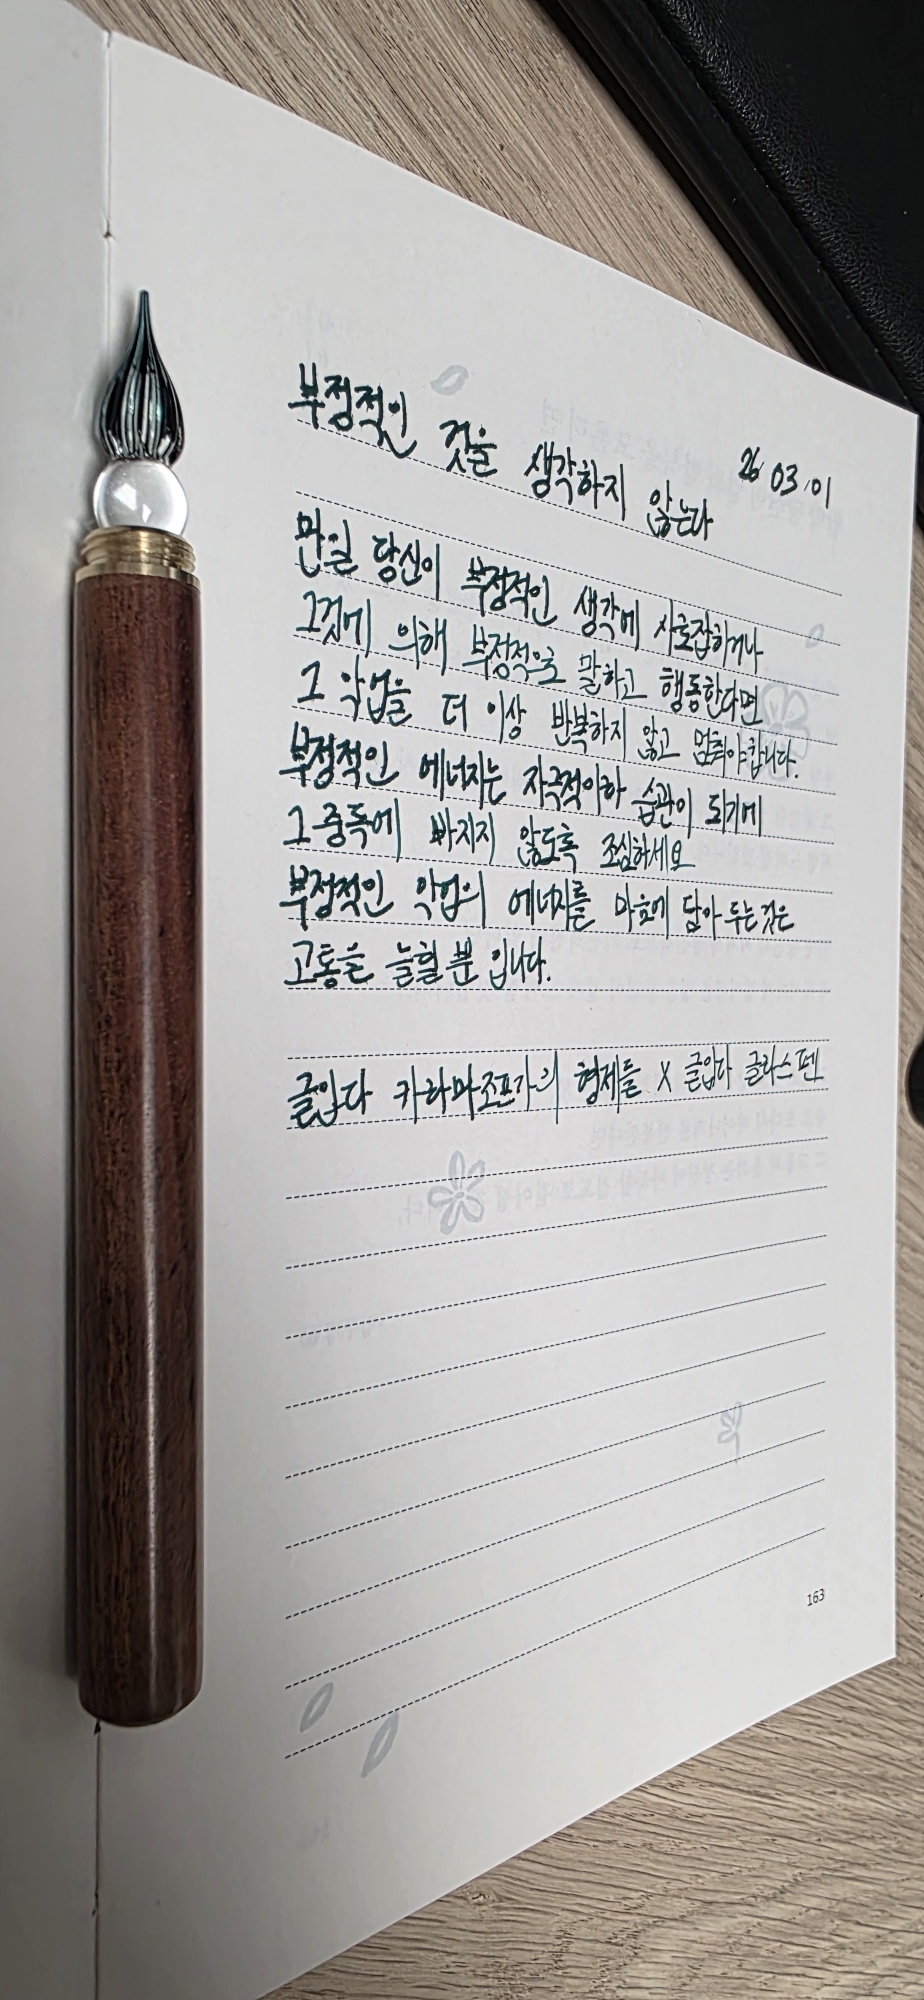 부정적인 것을 생각하지 않는다
26 03 01
만일 당신이 부정적인 생각에 사로잡히거나
그것에 의해 부정적으로 말하고 행동한다면
그 악업을 더 이상 반복하지 않고 멈춰야합니다.
부정적인 에너지는 자극적이라 습관이 되기에
그 중독에 빠지지 않도록 조심하세요
부정적인 악업의 에너지를 마음에 담아 두는것은
고통을 늘릴 뿐 입니다.
글입다 카라마조프가의 형제들 X 글입다 글라스펜
163